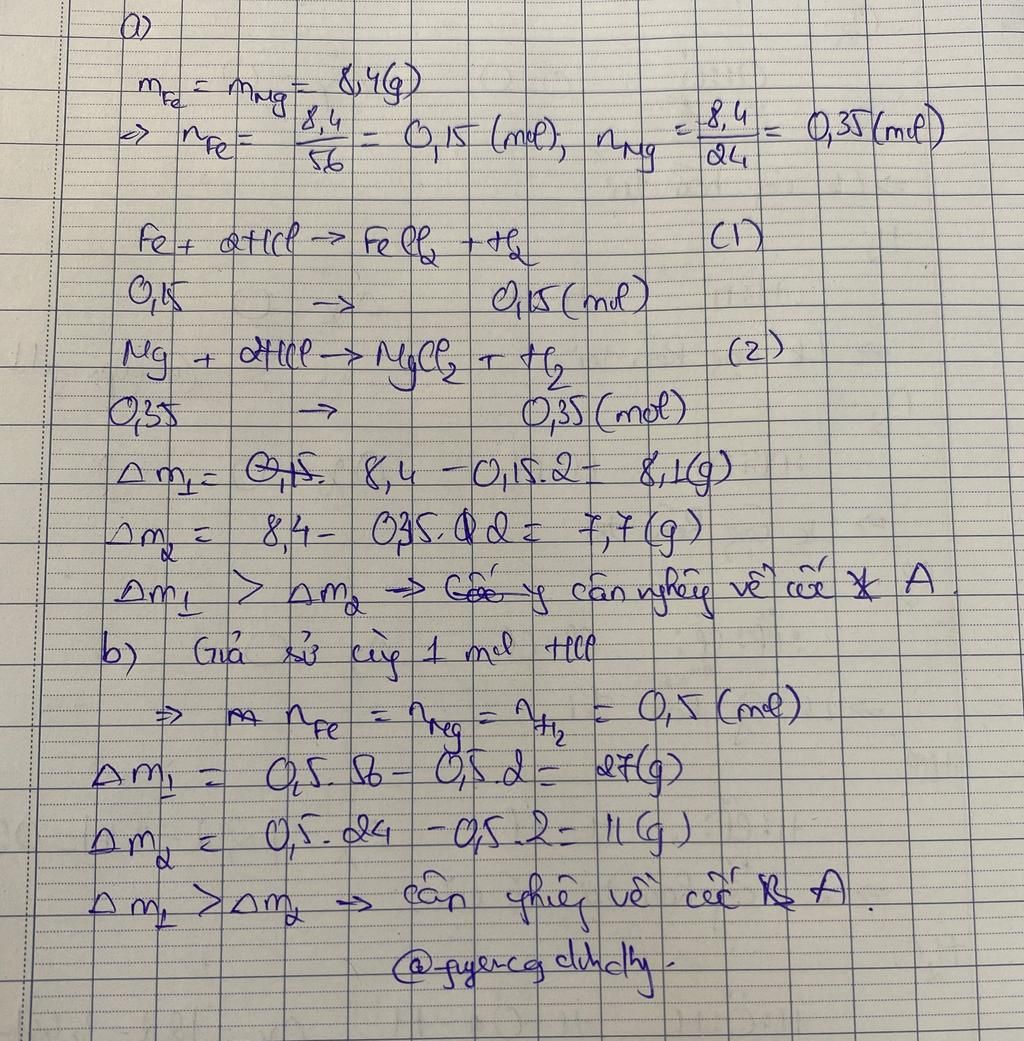 a)
m_Fe = m_Mg = 8,4(g)
=> n_Fe = 8,4/56 = 0,15 (mol); n_Mg = 8,4/24 = 0,35(mol)
Fe + 2HCl → FeCl₂ + H₂ (1)
0,15 → 0,15(mol)
Mg + 2HCl → MgCl₂ + H₂ (2)
0,35 → 0,35(mol)
Δm₁ = 8,4 - 0,15.2 = 8,1(g)
Δm₂ = 8,4 - 0,35.2 = 7,7(g)
Δm₁ > Δm₂ → cân nghiêng về cốc A
b) Giả sử cùng 1 mol HCl
=> n_Fe = n_Mg = n_H₂ = 0,5(mol)
Δm₁ = 0,5.56 - 0,5.2 = 27(g)
Δm₂ = 0,5.24 - 0,5.2 = 11(g)
Δm₁ > Δm₂ → cân nghiêng về cốc A.